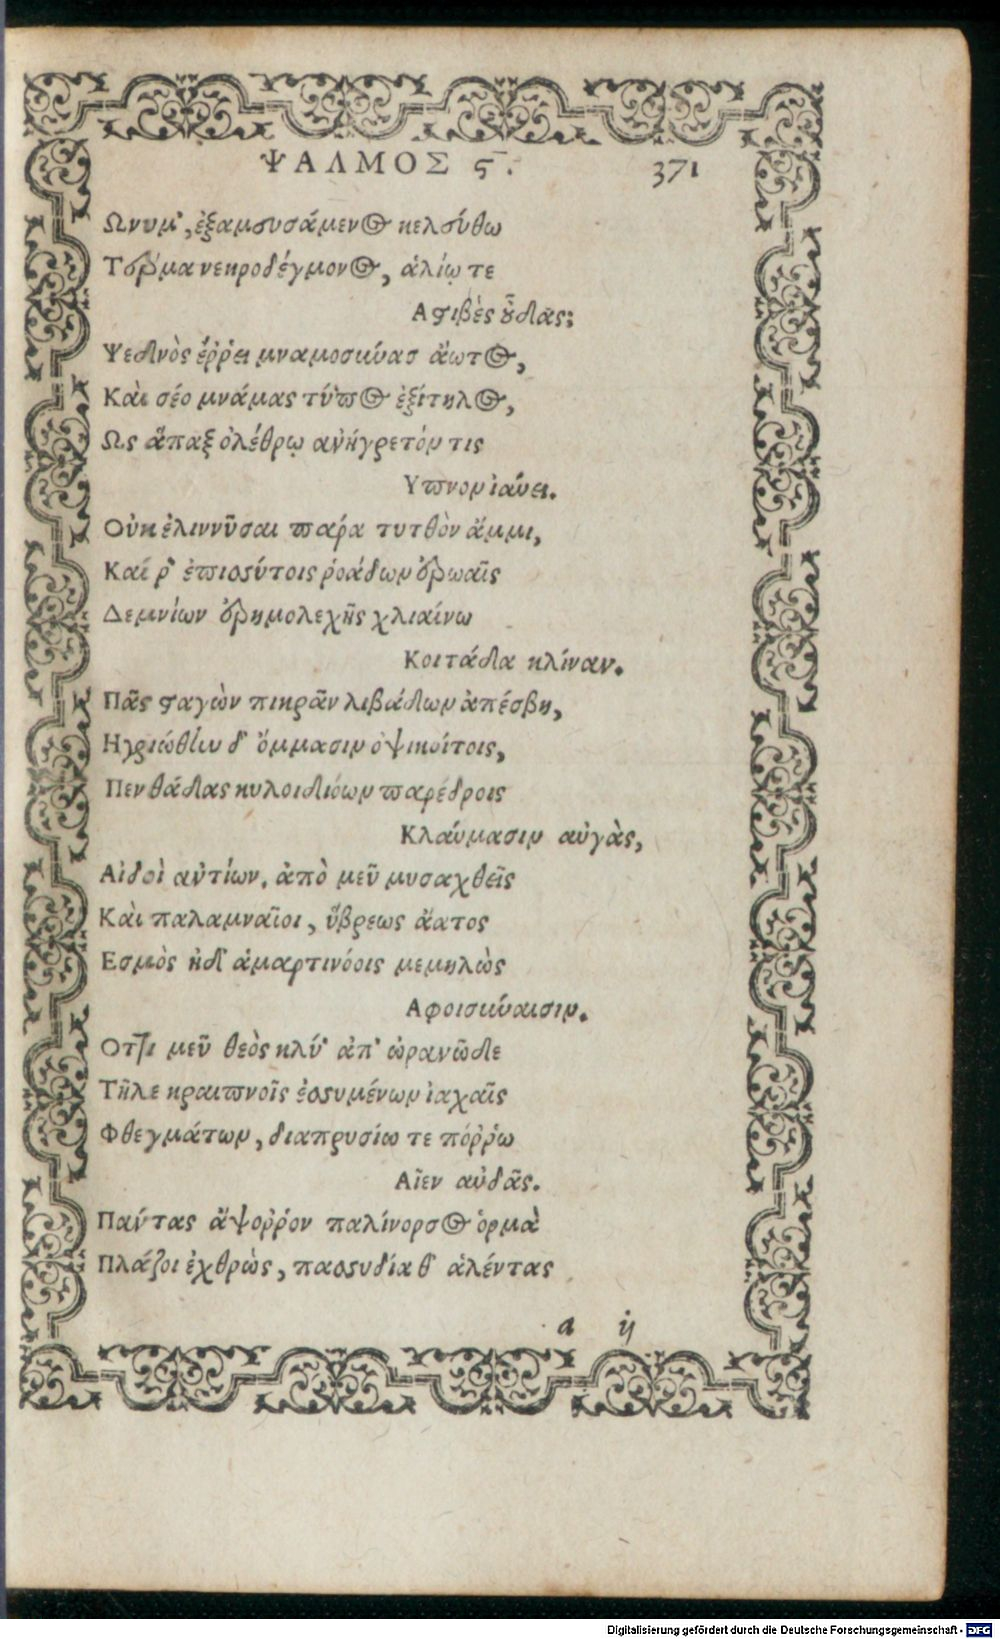 ΨΑΛΜΟΣ ϛ. 371
Ωνυμ', ἐξαμευσάμενος κελεύθω
Τέρμα νεκροδέγμονος, ἁλίῳ τε
Αστιβὲς οὖδας;
Ψεδνὸς ἔῤῥει μναμοσκύνας ἄωτος,
Καὶ σέο μνάμας τύπος ἐξίτηλος,
Ως ἅπαξ ὀλέθρῳ ἀνήγρετόν τις
Υπνον ἰαύει.
Οὐκ ἐλιννῦσαι παρὰ τυτθὸν ἄμμι,
Καί ῥ' ἐπισσύτοις ῥοάδων ἐρωαῖς
Δεμνίων ἐρημολεχὴς χλιαίνω
Κοιτάδα κλίναν.
Πᾶς σταγὼν πικρᾶν λιβάδων ἀπέσβη,
Ηγριώθην δ' ὄμμασιν ὀψικοίτοις,
Πενθάδας κυλοιδιόων παρέδροις
Κλαύμασιν αὐγὰς,
Αἰδοὶ αὐτίων. ἀπὸ μεῦ μυσαχθεῖς
Καὶ παλαμναῖοι, ὕβρεως ἄατος
Εσμὸς ἠδ' ἁμαρτινόοις μεμηλὼς
Αφροισύναισιν.
Οττι μεῦ θεὸς κλύ' ἀπ' ὠρανῶδε
Τῆλε κραιπνοῖς ἐσσυμένων ἰαχαῖς
Φθεγμάτων, διαπρυσίω τε πόῤῥω
Αἶεν αὐδᾶς.
Παύτας ἄψοῤῥον παλίνορσος ὁρμᾷ
Πλάζοι ἐχθρὼς, πασσυδία θ' ἁλέντας
a ij
Digitalisierung gefördert durch die Deutsche Forschungsgemeinschaft - DFG